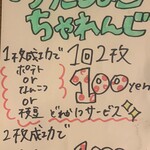 ちゃれんじ
1枚成功で
1回2枚
ポテト
or
なんこつ
or
枝豆
100yen
どれか1つサービス
2枚成功で